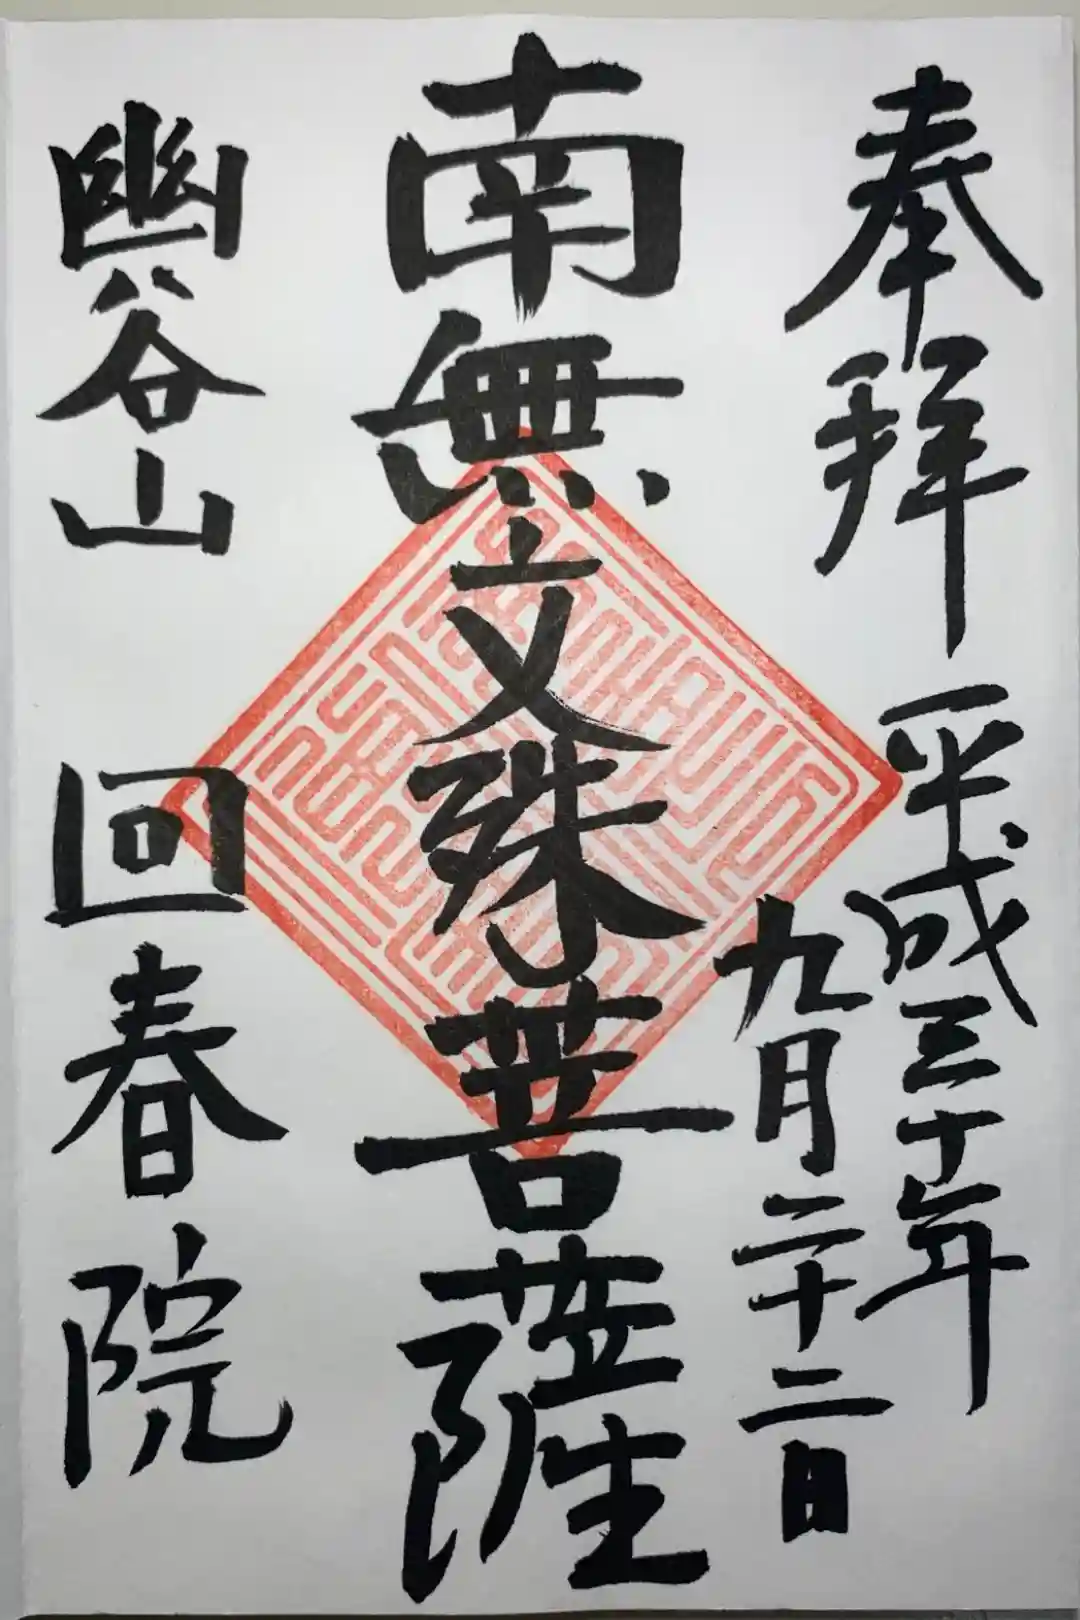 奉拝 平成三十年
九月二十二日
南無文殊菩薩
幽谷山 回春院